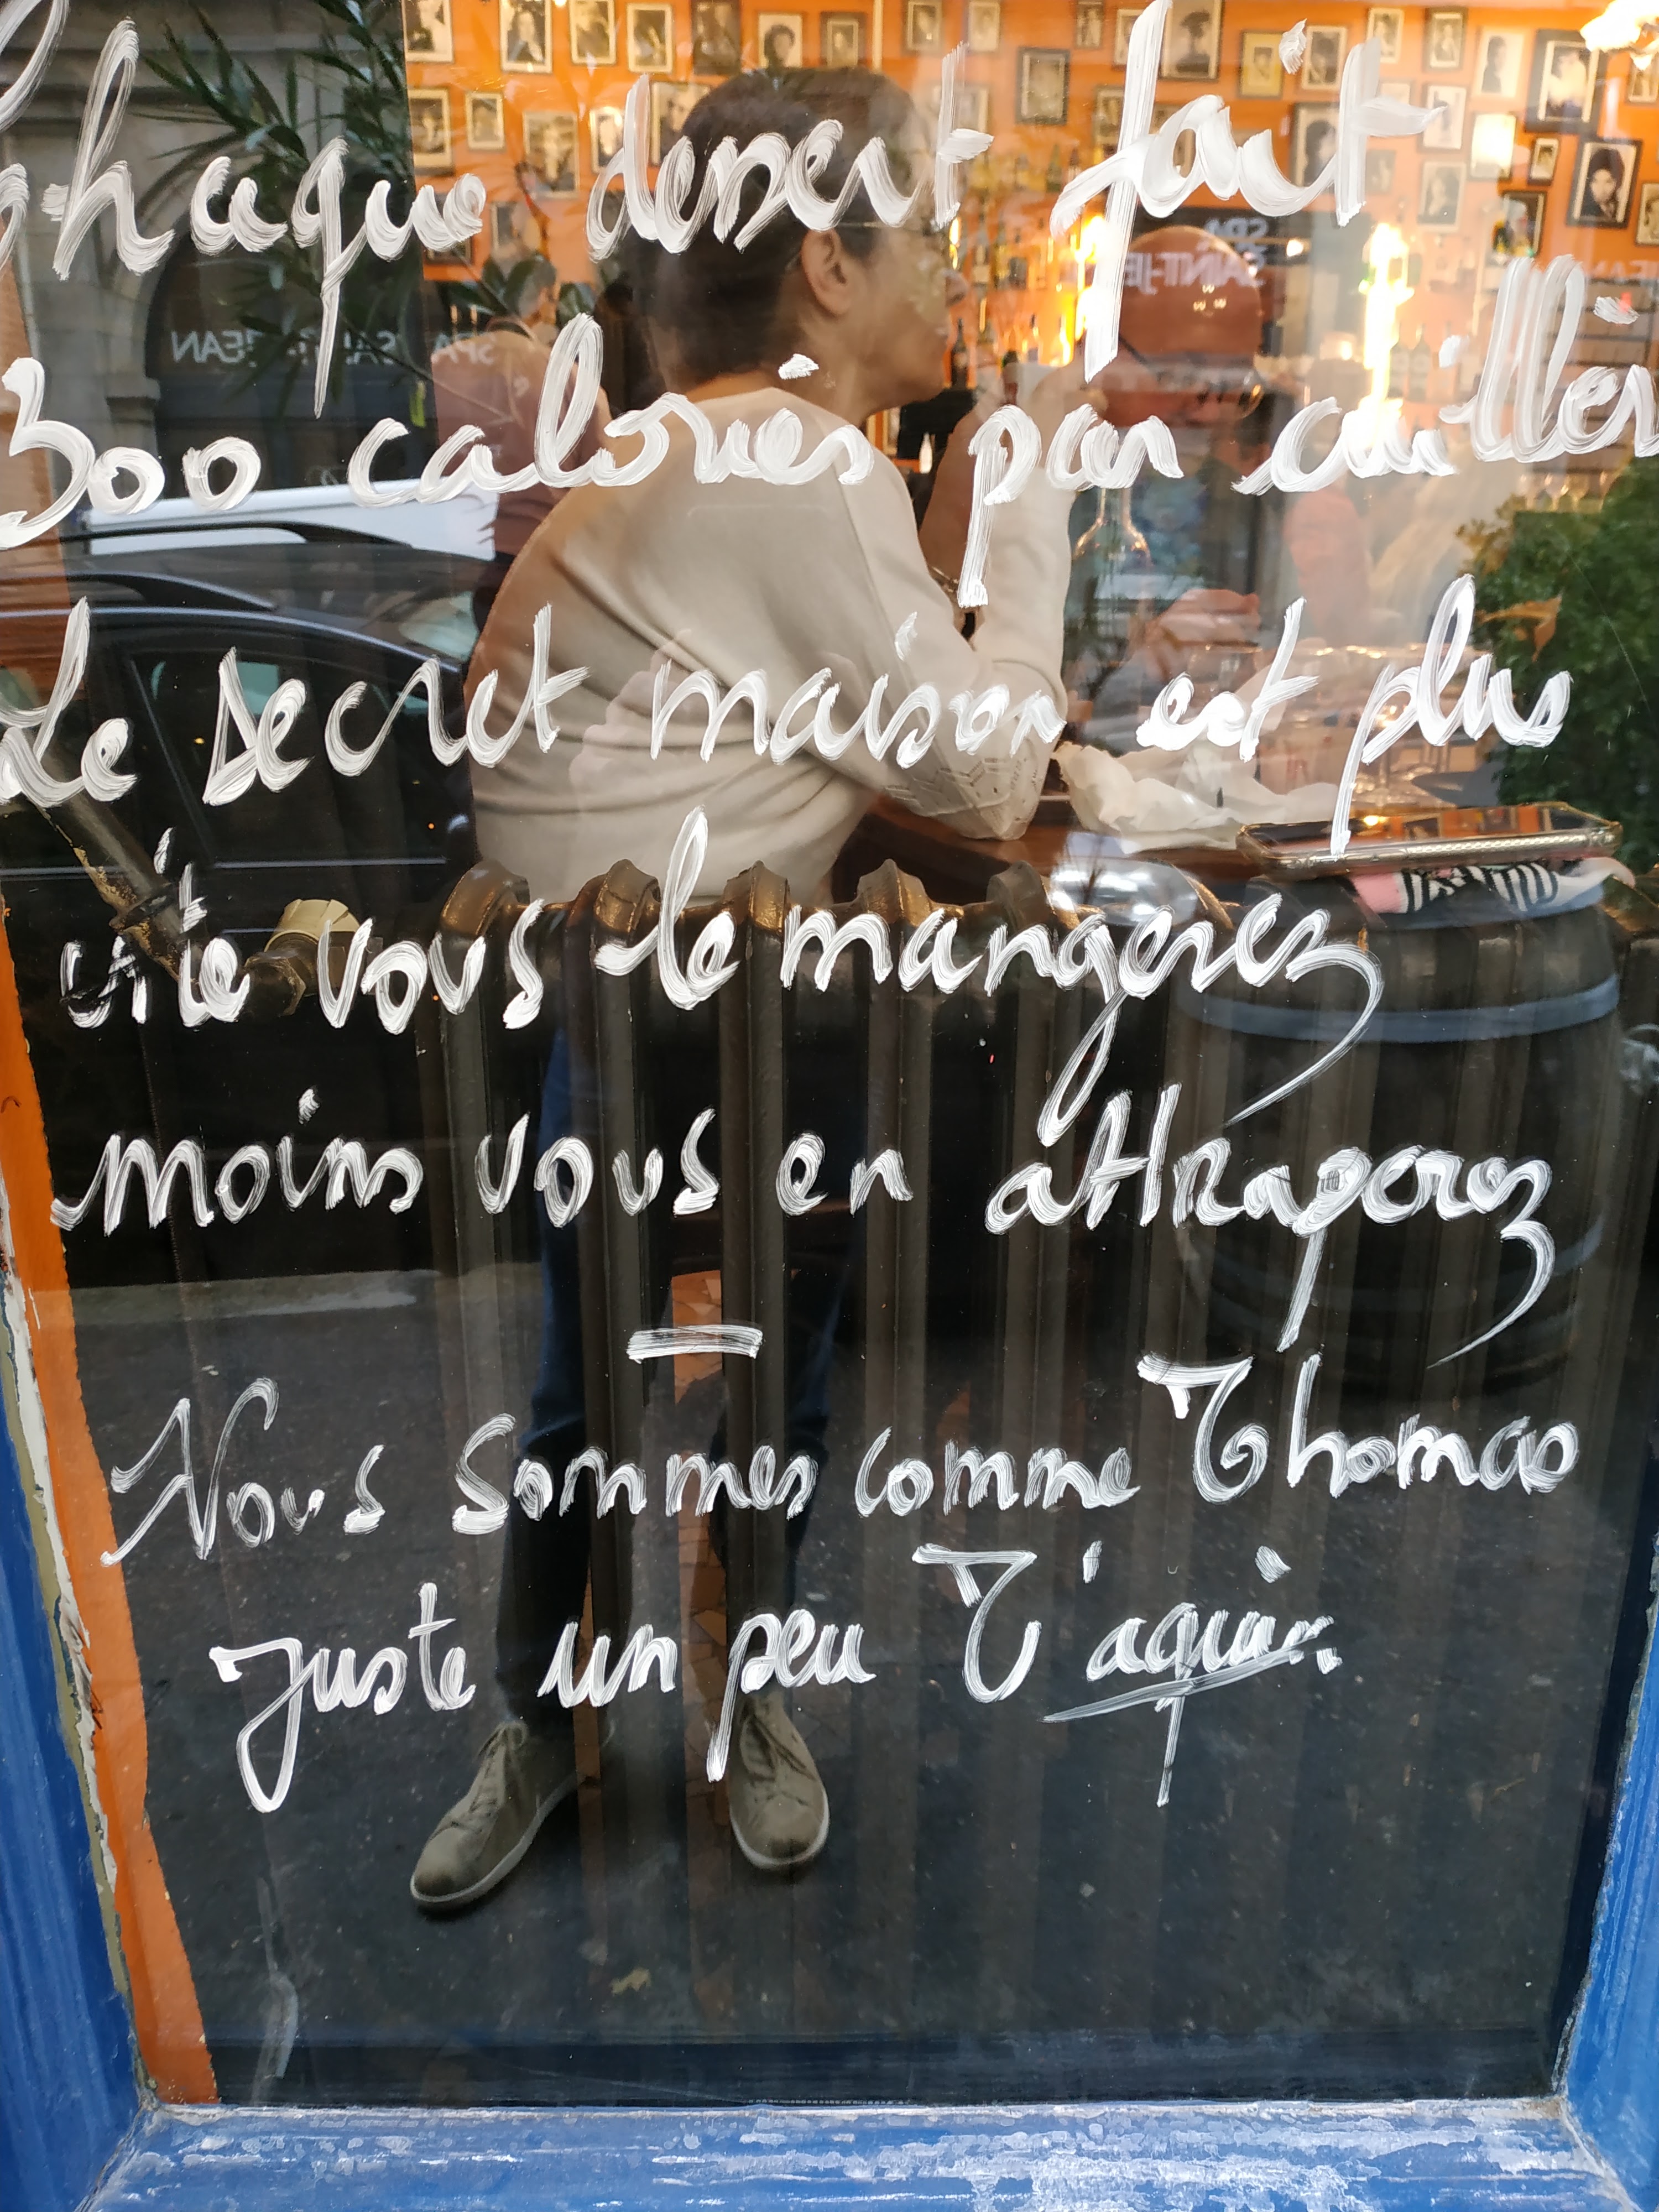 Chaque dessert fait
300 calories par cuillèr
Le secret maison est plus
vite vous le mangerez
moins vous en attraperez
—
Nous sommes comme Thomas
juste un peu T'aquin
SPA SAINT-JEAN
SPA
SAINT-JE